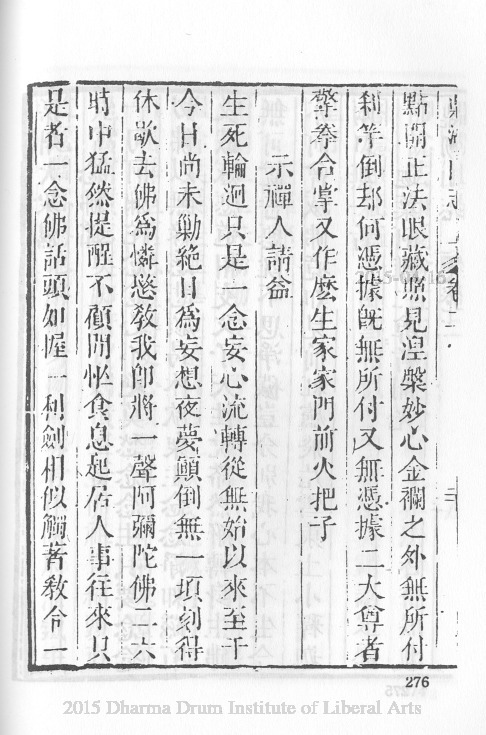 點開正法眼藏照見涅槃妙心金襴之外無所付
刹竿倒却何憑據旣無所付又無憑據二大尊者
擎拳合掌又作麽生家家門前火把子
示禪人請益
生死輪迴只是一念妄心流轉從無始以來至于
今日尚未勦絶日爲妄想夜夢顛倒無一頃刻得
休歇去佛爲憐愍敎我卽將一聲阿彌陀佛二六
時中猛然提醒不顧閒忙食息起居人事往來只
是者一念佛話頭如握一利劍相似觸著敎令一
276
2015 Dharma Drum Institute of Liberal Arts